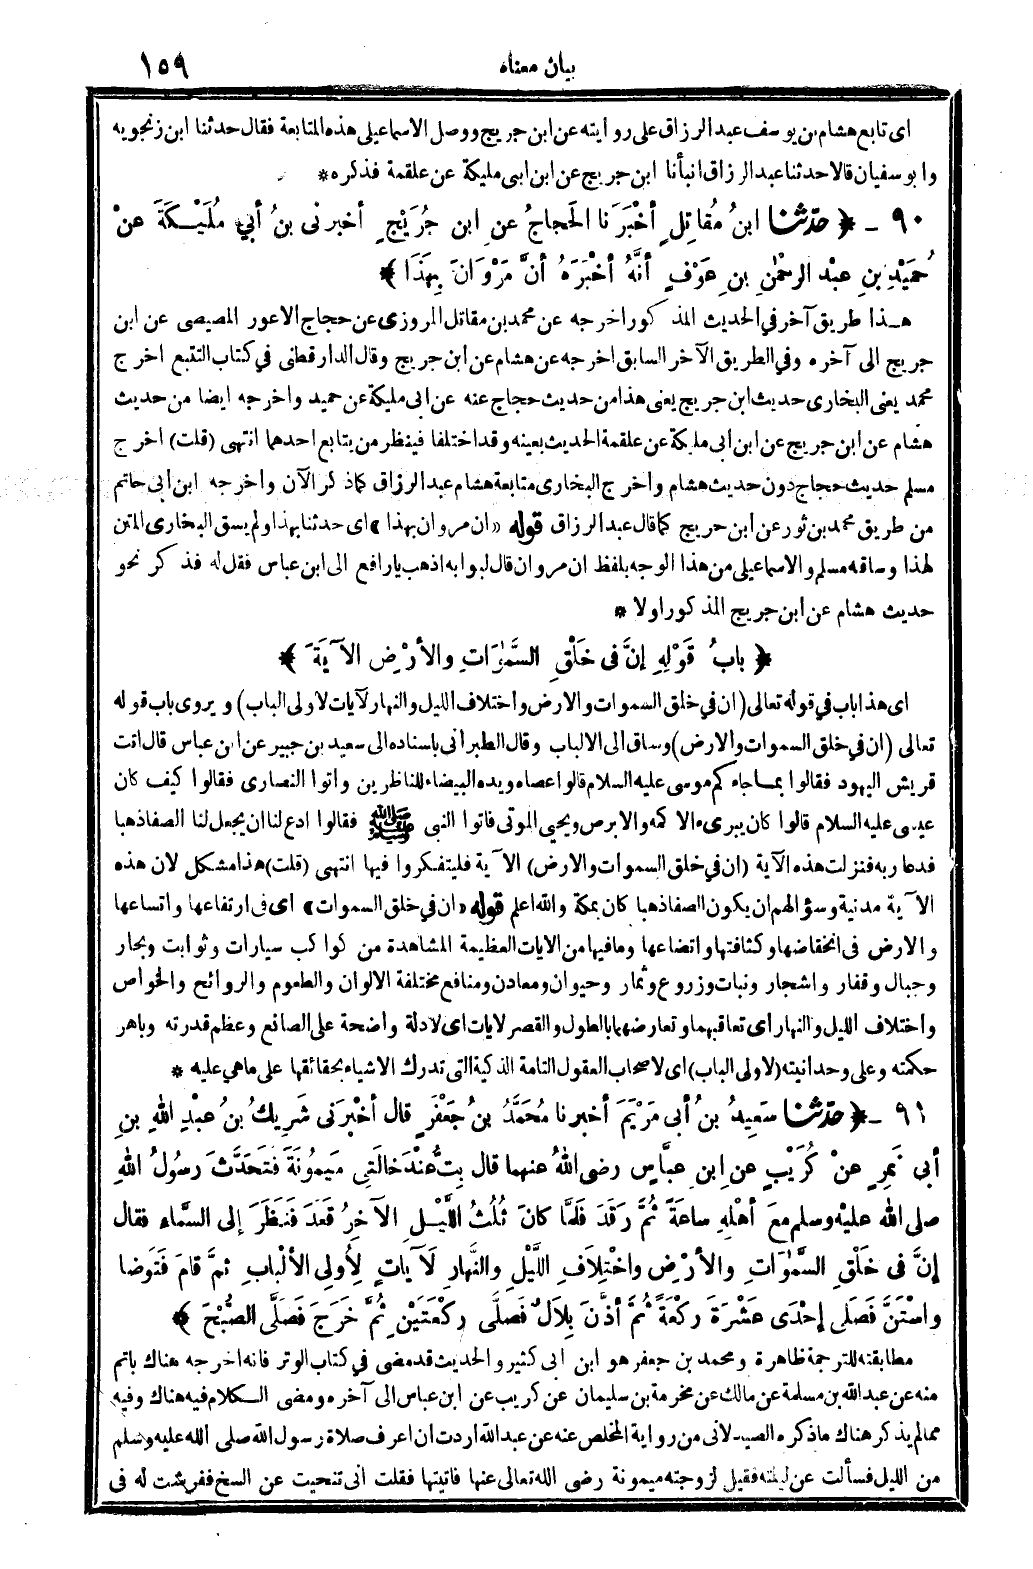 بيان معناه ١٥٩
اى تابع هشام بن يوسف عبد الرزاق على روايته عن ابن جريج ووصل الاسماعيلى هذه المتابعة فقال حدثنا ابن زنجويه
وابو سفيان قالا حدثنا عبد الرزاق انبأنا ابن جريج عن ابن ابى مليكة عن علقمة فذكره *
٩٠ ـ ﴿ حدّثنا ابنُ مُقاتِلٍ أخْبَرَنا الحَجاجُ عنِ ابنِ جُرَيْجٍ أخبرنى بنُ أبي مُلَيْكَةَ عنْ
حُمَيْدِ بنِ عبْدِ الرحْمٰنِ بنِ عَوْفٍ أنَّهُ أخْبَرَهُ أنَّ مَرْوَانَ بِهَذَا ﴾
هـذا طريق آخر في الحديث المذكور اخرجه عن محمد بن مقاتل المروزى عن حجاج الاعور المصيصى عن ابن
جريج الى آخره وفي الطريق الآخر السابق اخرجه عن هشام عن ابن جريج وقال الدارقطنى في كتاب التتبع اخرج
محمد يعنى البخارى حديث ابن جريج يعنى هذا من حديث حجاج عنه عن ابى مليكة عن حميد واخرجه ايضا من حديث
هشام عن ابن جريج عن ابن أبى مليكة عن علقمة الحديث بعينه وقد اختلفا فينظر من يتابع احدهما انتهى (قلت) اخرج
مسلم حديث حجاج دون حديث هشام واخرج البخارى متابعة هشام عبد الرزاق كما ذكر الآن واخرجه ابن أبى حاتم
من طريق محمد بن ثور عن ابن جريج كما قال عبد الرزاق قوله «ان مروان بهذا» اى حدثنا بهذا ولم يسق البخارى المتن
لهذا وساقه مسلم والاسماعيلى من هذا الوجه بلفظ ان مروان قال لبوابه اذهب يا رافع الى ابن عباس فقل له فذكر نحو
حديث هشام عن ابن جريج المذكور اولا *
﴿ بابُ قَوْلِهِ إنَّ فى خَلْقِ السَّمٰوَاتِ والأرْضِ الآيَةَ ﴾
اى هذا باب في قوله تعالى (ان في خلق السموات والارض واختلاف الليل والنهار لآيات لاولى الباب) ويروى باب قوله
تعالى (ان في خلق السموات والارض) وساق الى الالباب وقال الطبرانى باسناده الى سعيد بن جبير عن ابن عباس قال اتت
قريش اليهود فقالوا بما جاءكم موسى عليه السلام قالوا عصاه ويده البيضاء للناظرين واتوا النصارى فقالوا كيف كان
عيسى عليه السلام قالوا كان يبرىء الاكمه والابرص ويحيى الموتى فاتوا النبى ﷺ فقالوا ادع لنا ان يجعل لنا الصفا ذهبا
فدعا ربه فنزلت هذه الآية (ان في خلق السموات والارض) الآية فليتفكروا فيها انتهى (قلت) هذا مشكل لان هذه
الآية مدنية وسؤالهم ان يكون الصفا ذهبا كان بمكة والله اعلم قوله «ان في خلق السموات» اى فى ارتفاعها واتساعها
والارض فى انخفاضها وكثافتها واتضاعها وما فيها من الايات العظيمة المشاهدة من كواكب سيارات وثوابت وبحار
وجبال وقفار واشجار ونبات وزروع وثمار وحيوان ومعادن ومنافع مختلفة الالوان والطعوم والروائح والخواص
واختلاف الليل والنهار اى تعاقبهما وتعارضهما بالطول والقصر لايات اى لادلة واضحة على الصانع وعظم قدرته وباهر
حكمته وعلى وحدانيته (لاولى الباب) اى لاصحاب العقول التامة الذكية التى تدرك الاشياء بحقائقها على ما هى عليه *
٩١ ـ ﴿ حدّثنا سَعِيدُ بنُ أبى مَرْيَمَ أخبرنا مُحَمَّدُ بنُ جَعْفَرٍ قال أخْبرَنى شَرِيكُ بنُ عبْدِ اللهِ بنِ
أبى نَمِرٍ عنْ كُرَيْبٍ عنِ ابنِ عبَّاسٍ رضى اللهُ عنهما قال بِتُّ عِنْدَ خالَتِى مَيمُونَةَ فَتَحَدَّثَ رسُولُ اللهِ
صلى الله عليْه وسلم مَعَ أهْلِهِ ساعَةً ثُمَّ رَقَدَ فَلمَّا كانَ ثُلُثُ اللَّيْـلِ الآخِرُ قَعَدَ فَنَظَرَ إلى السَّماءِ فقال
إنَّ فى خَلْقِ السَّمٰوَاتِ والأرْضِ واخْتِلاَفِ اللَّيْلِ والنَّهارِ لَآياتٍ لِأُولِى الألْبابِ ثمَّ قامَ فَتَوَضا
واسْتَنَّ فَصَلَى إحْدَى عَشْرَةَ ركْعَةً ثُمَّ أذَّنَ بِلاَلٌ فَصلَّى ركْعَتَيْنِ ثُمَّ خَرَجَ فَصَلَّى الصُّبْحَ ﴾
مطابقته للترجمة ظاهرة ومحمد بن جعفر هو ابن ابى كثير والحديث قد مضى في كتاب الوتر فانه اخرجه هناك باتم
منه عن عبد الله بن مسلمة عن مالك عن مخرمة بن سليمان عن كريب عن ابن عباس الى آخره ومضى الـكلام فيه هناك وفيه
مما لم يذكر هناك ما ذكره الصيدلانى من رواية المخلص عنه عن عبد الله اردت ان اعرف صلاة رسول الله صلى الله عليه وسلم
من الليل فسألت عن ليلته فقيل لزوجته ميمونة رضى الله تعالى عنها فاتيتها فقلت انى تنحيت عن السخ ففرشت له فى